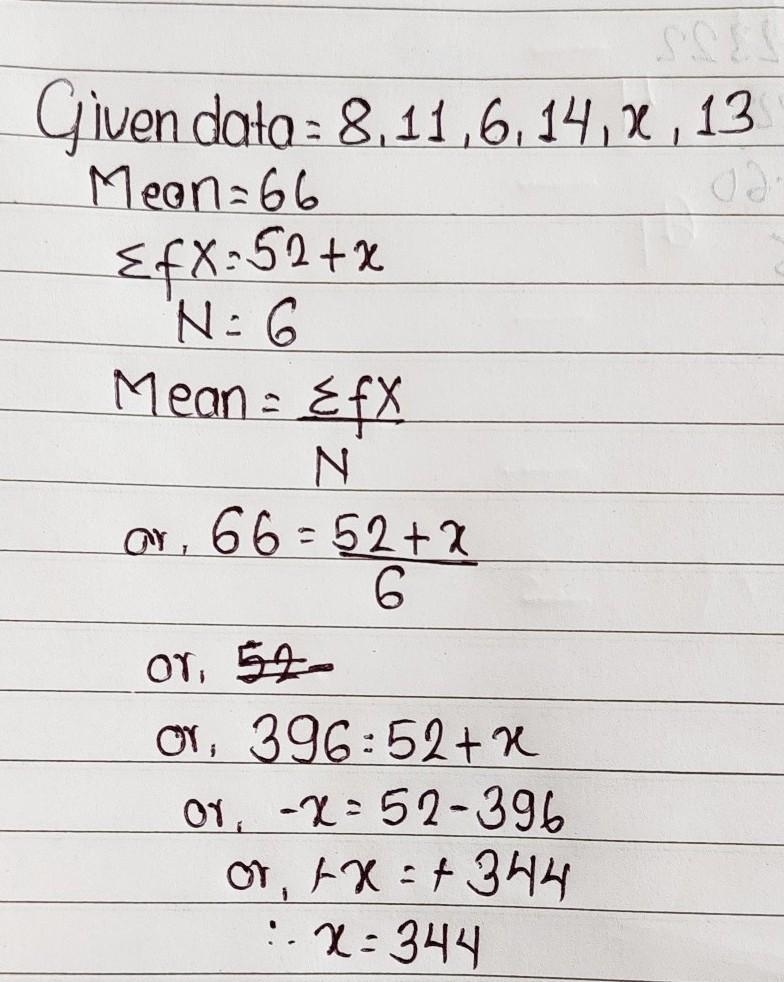 Given data = 8, 11, 6, 14, x, 13
Mean = 66
ΣfX = 52 + x
N = 6
Mean = ΣfX
N
or, 66 = 52 + x
6
or, 52 -
or, 396 = 52 + x
or, -x = 52 - 396
or, +x = + 344
∴ x = 344